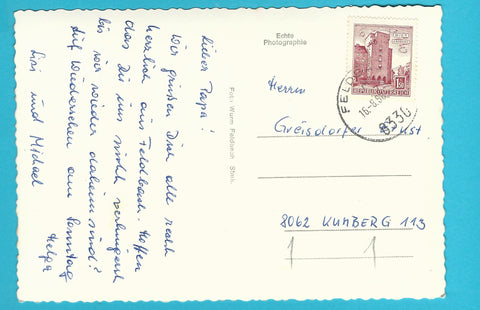 Lieber Papa!
Wir grüßen Dich alle recht
herzlich aus Feldbach. Hoffen
das Du uns nicht verhungerst
bis wir wieder daheim sind?
Auf Wiedersehen am Sonntag
Helga
Susi und Michael
Echte
Photographie
Foto Wurm Feldbach, Stmk.
REPUBLIK ÖSTERREICH
FELDB
8330
Herrn
Greisdorfer
8062 KUMBERG 113